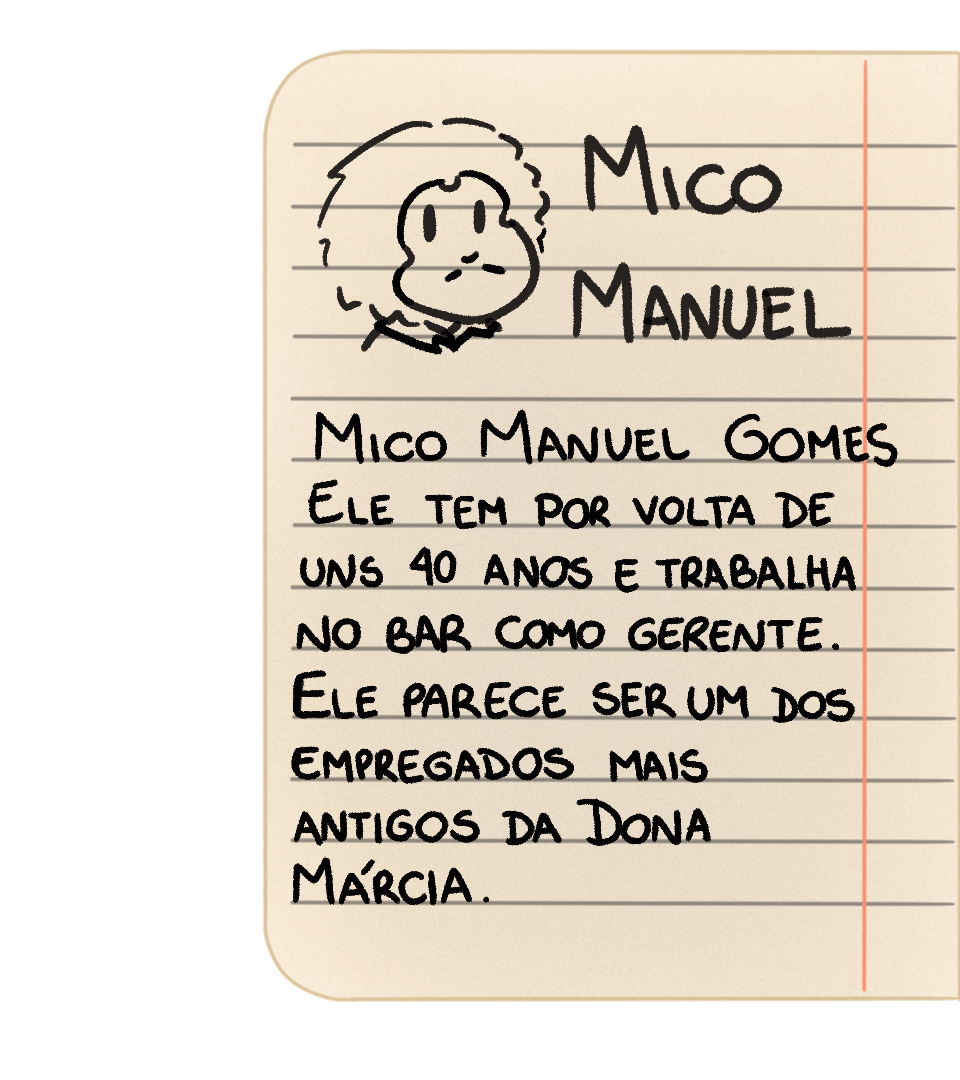 Mico
Manuel
Mico Manuel Gomes
Ele tem por volta de
uns 40 anos e trabalha
no bar como gerente.
Ele parece ser um dos
empregados mais
antigos da Dona
Márcia.